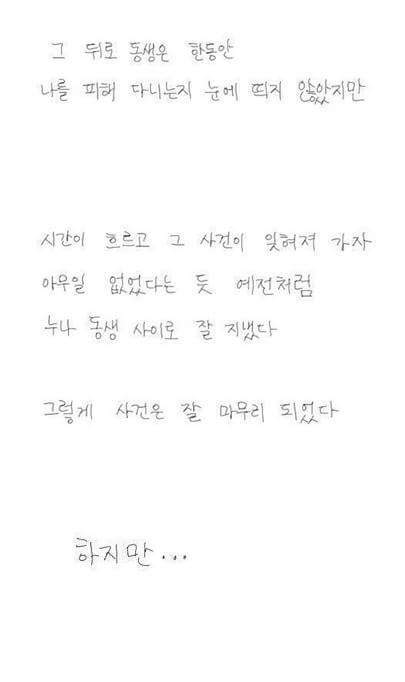 그 뒤로 동생은 한동안
나를 피해 다니는지 눈에 띄지 않았지만
시간이 흐르고 그 사건이 잊혀져 가자
아우일 없었다는 듯 예전처럼
누나 동생 사이로 잘 지냈다
그렇게 사건은 잘 마무리 되었다
하지만...